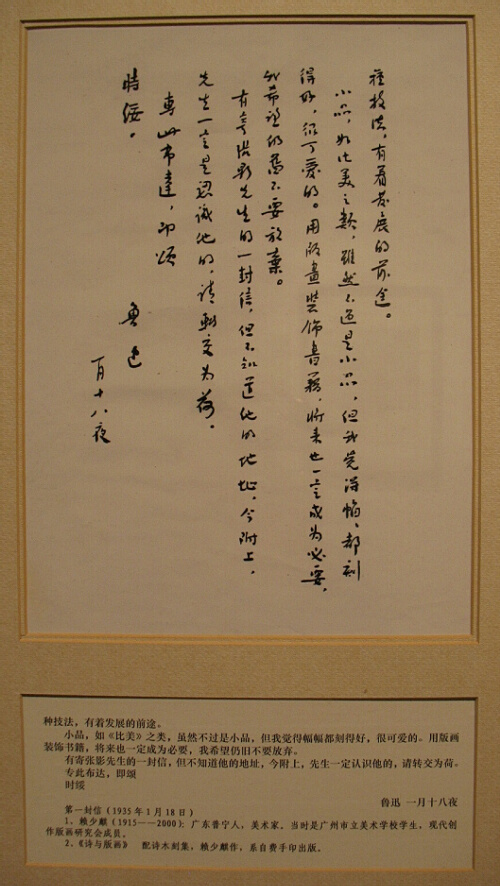 種技法，有着發展的前途。
小品，如比美之類，雖然不過是小品，但我覺得幅幅都刻
得好，很可愛的。用版畫裝飾書籍，將来也一定成为必要，
我希望仍舊不要放棄。
有寄張影先生的一封信，但不知道他的地址，今附上，
先生一定是認識他的，請轉交为荷。
專此布達，即頌
時綏。
魯迅
一月十八夜
种技法，有着发展的前途。
小品，如《比美》之类，虽然不过是小品，但我觉得幅幅都刻得好，很可爱的。用版画
装饰书籍，将来也一定成为必要，我希望仍旧不要放弃。
有寄张影先生的一封信，但不知道他的地址，今附上，先生一定认识他的，请转交为荷。
专此布达，即颂
时绥
鲁迅 一月十八夜
第一封信（1935年1月18日）
1、赖少麒（1915——2000）：广东普宁人，美术家。当时是广州市立美术学校学生，现代创
作版画研究会成员。
2、《诗与版画》 配诗木刻集，赖少麒作，系自费手印出版。